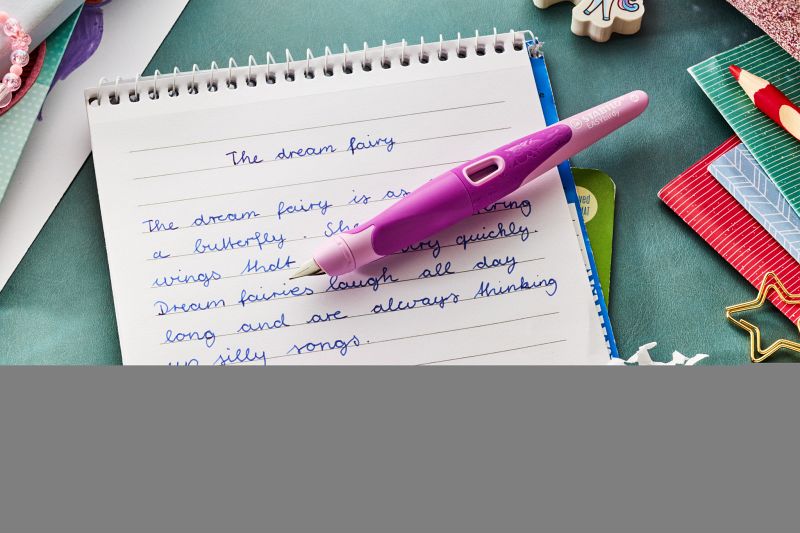 The dream fairy
The dream fairy is as
a butterfly. She very quickly.
wings that
Dream fairies laugh all day
long and are always thinking
up silly songs.
STABILO
EASYbirdy